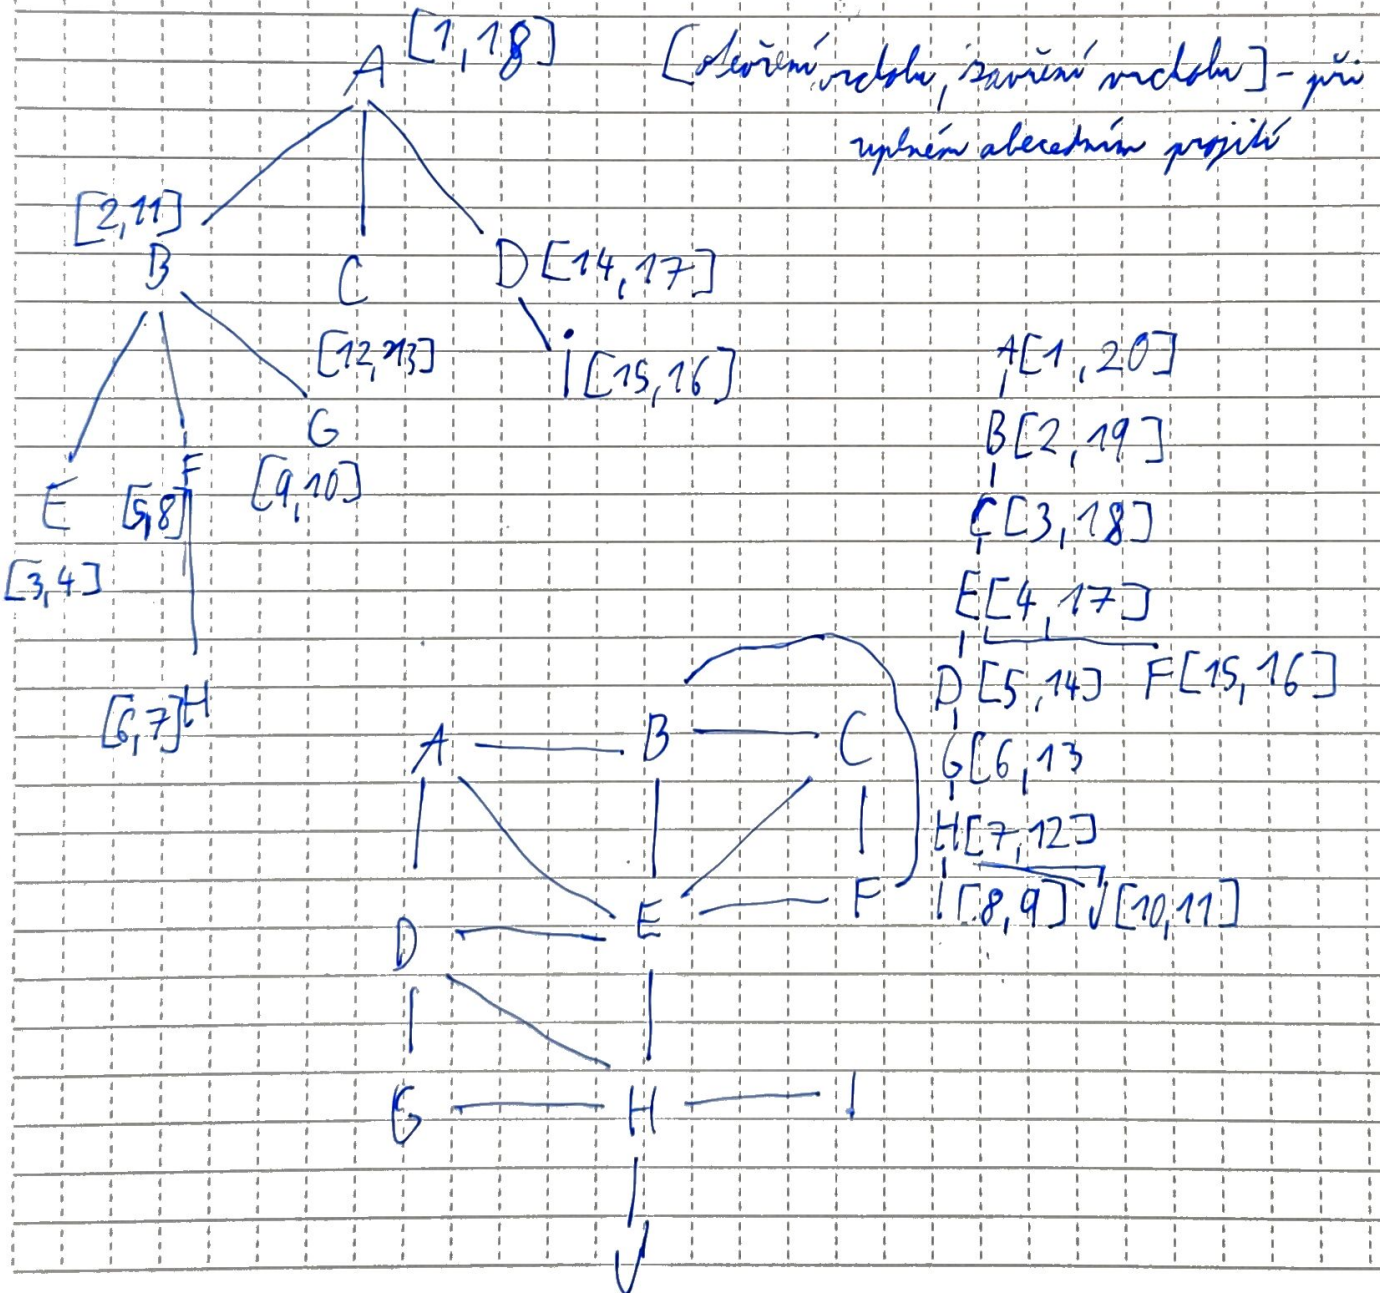 A [1,18]
[otevření vrcholu, zavření vrcholu] - při
úplném abecedním projití
[2,11]
B
C
D [14,17]
[12,13]
i [15,16]
G
E
[5,8]
F
[9,10]
[3,4]
[6,7] H
A [1,20]
B [2,19]
C [3,18]
E [4,17]
D [5,14] F [15,16]
G [6,13
H [7,12]
I [8,9] J [10,11]
A B C
D E F
G H I
J